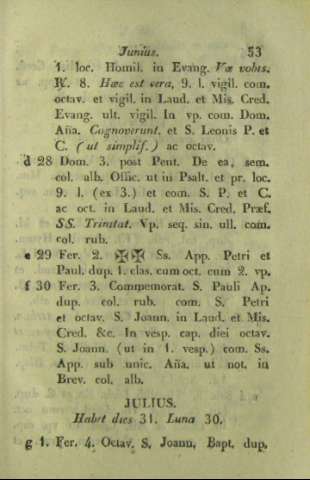 Junius. 53
1. loc. Homil. in Evang. Væ vobis.
R. 8. Hæc est vera, 9. l. vigil. com.
octav. et vigil. in Laud. et Mis. Cred.
Evang. ult. vigil. In vp. com. Dom.
Aña. Cognoverunt. et S. Leonis P. et
C. (ut simplif.) ac octav.
d 28 Dom. 3. post Pent. De ea, sem.
col. alb. Offic. ut in Psalt. et pr. loc.
9. l. (ex 3.) et com. S. P. et C.
ac oct. in Laud. et Mis. Cred. Præf.
SS. Trinitat. Vp. seq. sin. ull. com.
col. rub.
e 29 Fer. 2. ✠✠ Ss. App. Petri et
Paul. dup. 1. clas. cum oct. cum 2. vp.
f 30 Fer. 3. Commemorat. S. Pauli Ap.
dup. col. rub. com. S. Petri
et octav. S. Joann. in Laud. et Mis.
Cred. &c. In vesp. cap. diei octav.
S. Joann. (ut in 1. vesp.) com. Ss.
App. sub unic. Aña. ut not. in
Brev. col. alb.
JULIUS.
Habet dies 31. Luna 30.
g 1. Fer. 4. Octav. S. Joann. Bapt. dup.